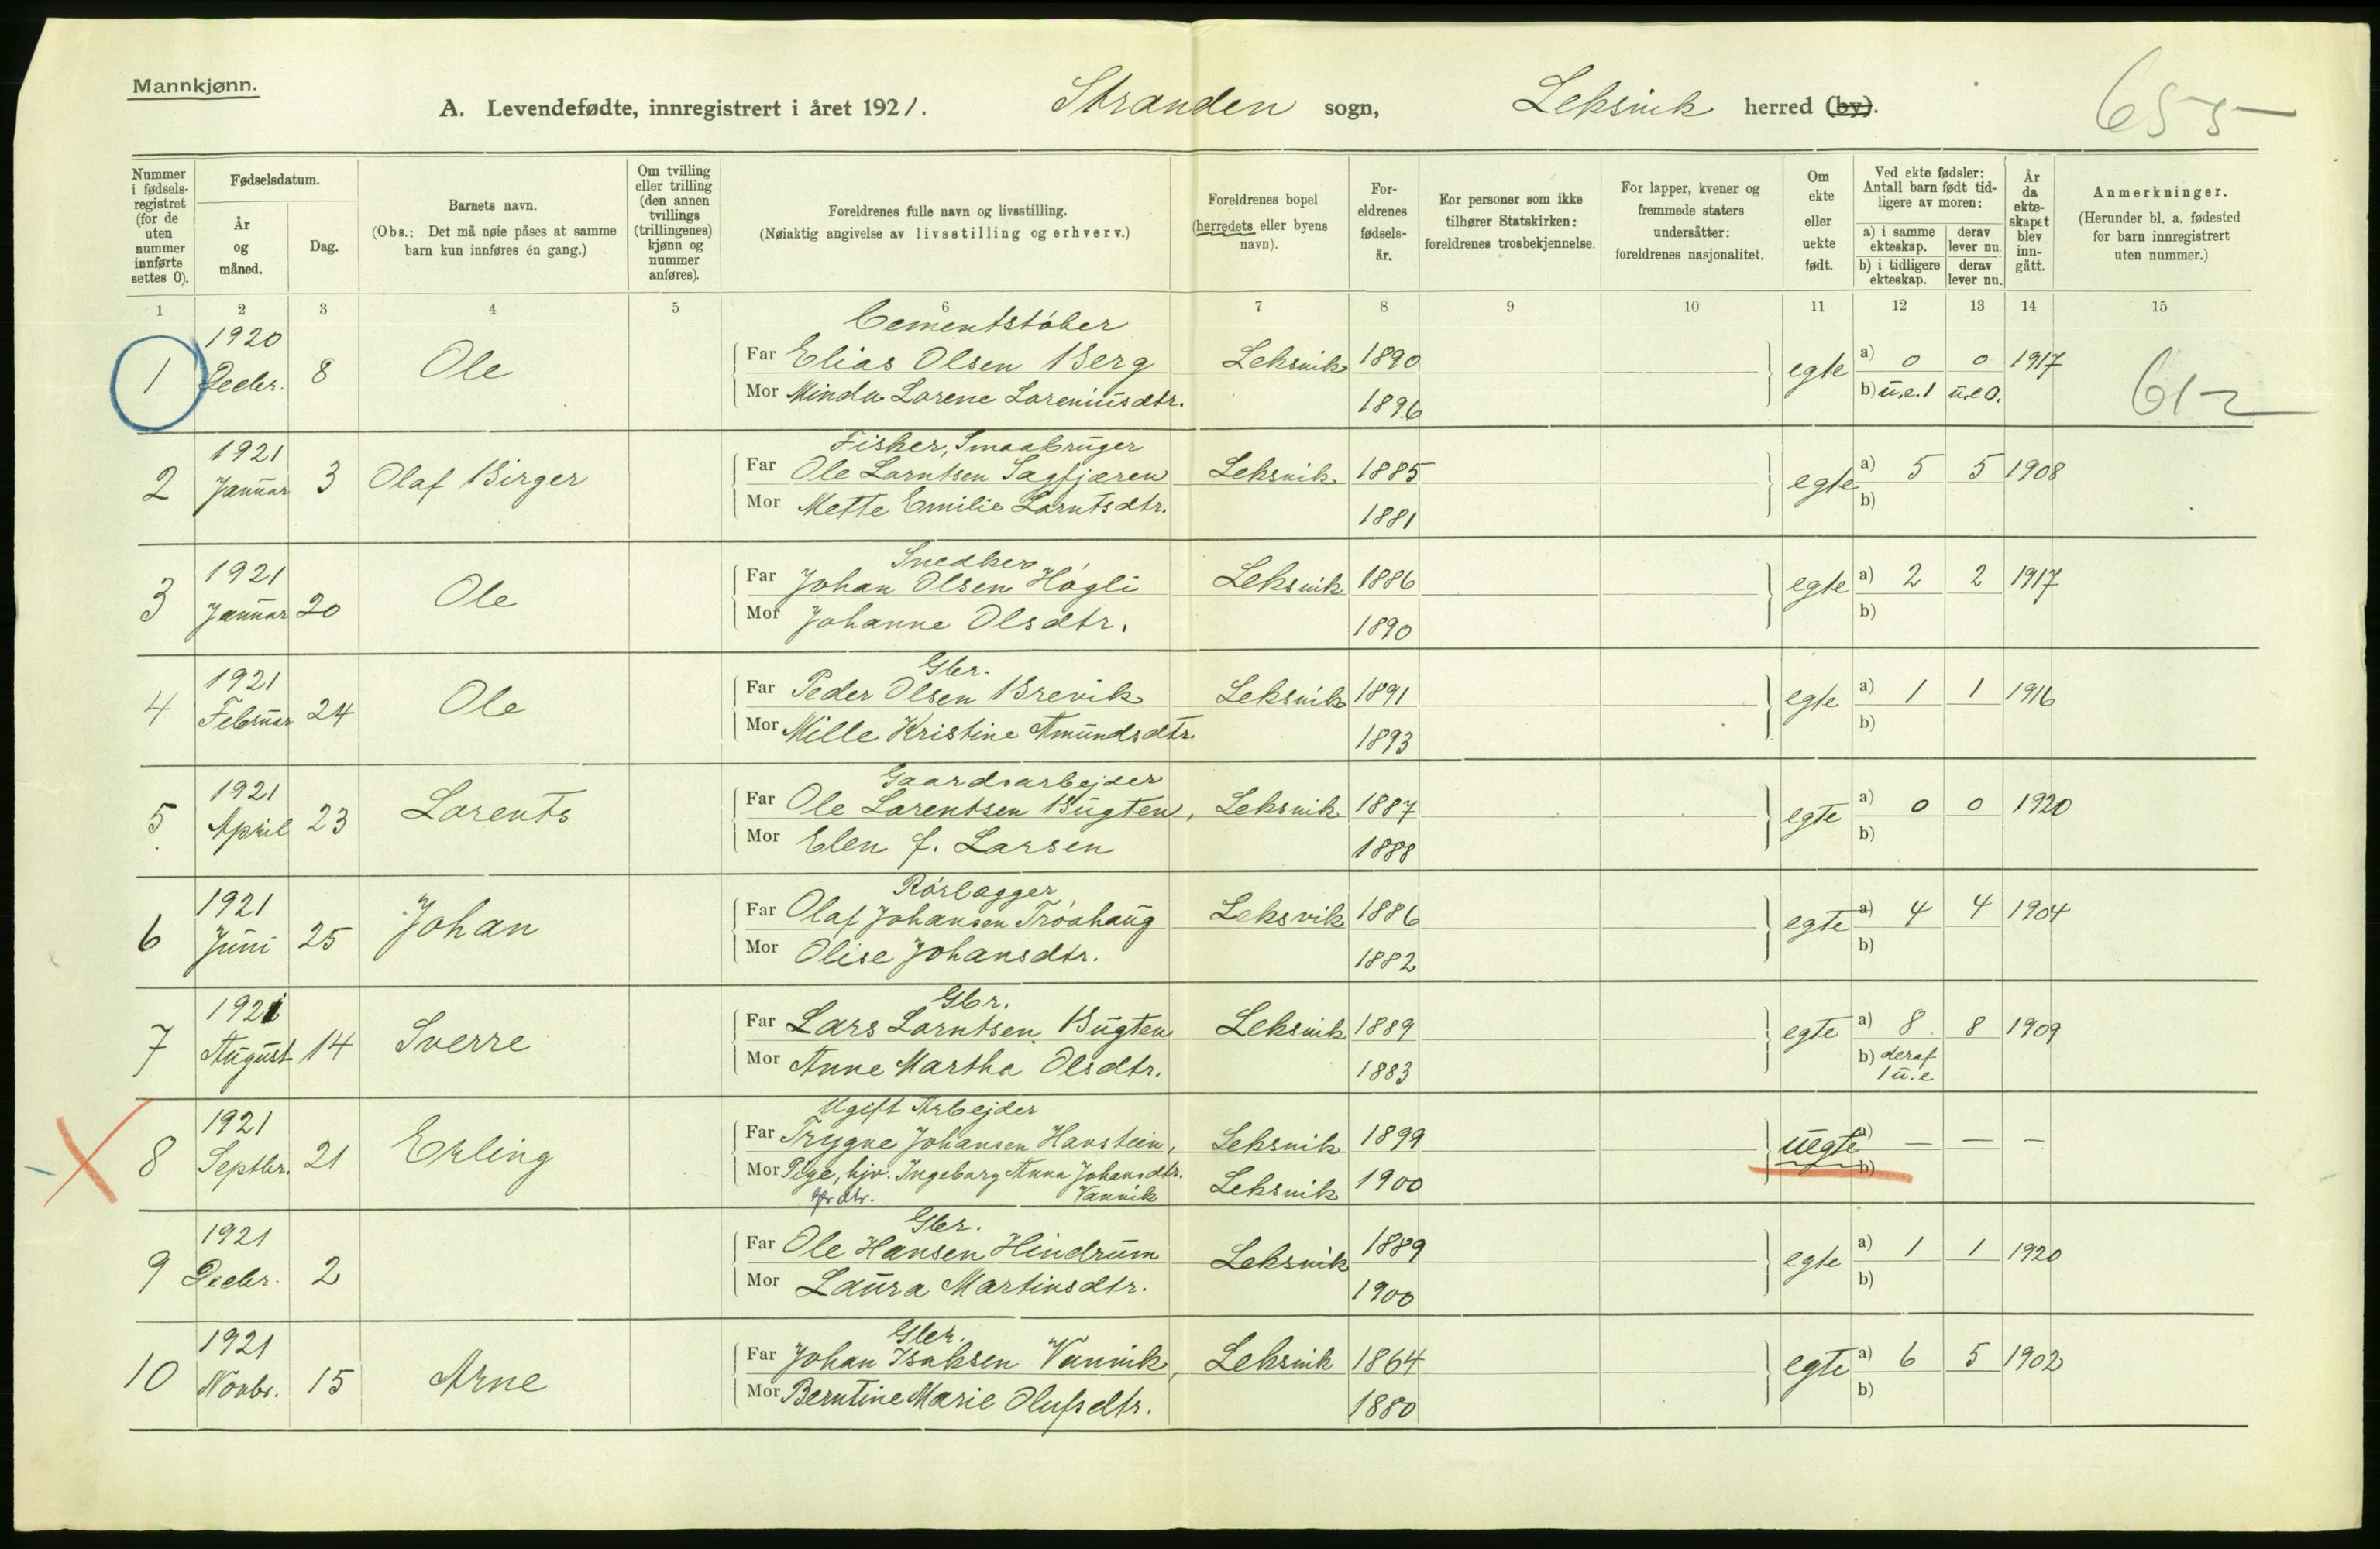 Mannkjønn.
A. Levendefødte, innregistrert i året 1921. Stranden sogn, Leksvik herred (by).
655
Nummer i fødsels-registret (for de uten nummer innførte settes 0).
Fødselsdatum.
År og måned.
Dag.
Barnets navn.
(Obs.: Det må nøie påses at samme barn kun innføres én gang.)
Om tvilling eller trilling (den annen tvillings (trillingenes) kjønn og nummer anføres).
Foreldrenes fulle navn og livsstilling.
(Nøiaktig angivelse av livsstilling og erhverv.)
Foreldrenes bopel (herredets eller byens navn).
For-eldrenes fødsels-år.
For personer som ikke tilhører Statskirken: foreldrenes trosbekjennelse.
For lapper, kvener og fremmede staters undersåtter: foreldrenes nasjonalitet.
Om ekte eller uekte født.
Ved ekte fødsler: Antall barn født tid-ligere av moren:
a) i samme ekteskap.
derav lever nu.
b) i tidligere ekteskap.
derav lever nu.
År da ekte-skapet blev inn-gått.
Anmerkninger.
(Herunder bl. a. fødested for barn innregistrert uten nummer.)
1 2 3 4 5 6 7 8 9 10 11 12 13 14 15
1920 Cementstøber
1 Decbr. 8 Ole Far Elias Olsen Berg Leksvik 1890 egte a) 0 0 1917
Mor Minda Lorene Loreniusdtr. 1896 b) u.e.1 u.e 0. 612
1921 Fisker, Smaabruger
2 Januar 3 Olaf Birger Far Ole Larntsen Sagfjæren Leksvik 1885 egte a) 5 5 1908
Mor Mette Emilie Larntsdtr. 1881 b)
1921 Snedker
3 Januar 20 Ole Far Johan Olsen Høgli Leksvik 1886 egte a) 2 2 1917
Mor Johanne Olsdtr. 1890 b)
1921 Gbr.
4 Februar 24 Ole Far Peder Olsen Brevik Leksvik 1891 egte a) 1 1 1916
Mor Mille Kristine Amundsdtr. 1893 b)
1921 Gaardsarbejder
5 April 23 Lorents Far Ole Lorentsen Bugten, Leksvik 1887 egte a) 0 0 1920
Mor Elen f. Larsen 1888 b)
1921 Rørlægger
6 Juni 25 Johan Far Olaf Johansen Trøahaug Leksvik 1886 egte a) 4 4 1904
Mor Olise Johansdtr. 1882 b)
1921 Gbr.
7 August 14 Sverre Far Lars Larntsen Bugten Leksvik 1889 egte a) 8 8 1909
Mor Anne Martha Olsdtr. 1883 b) deraf 1 u.e
1921 Ugift Arbejder
8 Septbr. 21 Erling Far Trygve Johansen Hanstein, Leksvik 1899 uegte a) — — —
Mor Pige, hjv. Ingeborg Anna Johansdtr. Leksvik 1900 b)
Vannik
1921 Gbr.
9 Decbr. 2 Far Ole Hansen Hindrum Leksvik 1889 egte a) 1 1 1920
Mor Laura Martinsdtr. 1900 b)
1921 Gbr.
10 Novbr. 15 Arne Far Johan Isaksen Vannik, Leksvik 1864 egte a) 6 5 1902
Mor Berntine Marie Olufsdtr. 1880 b)